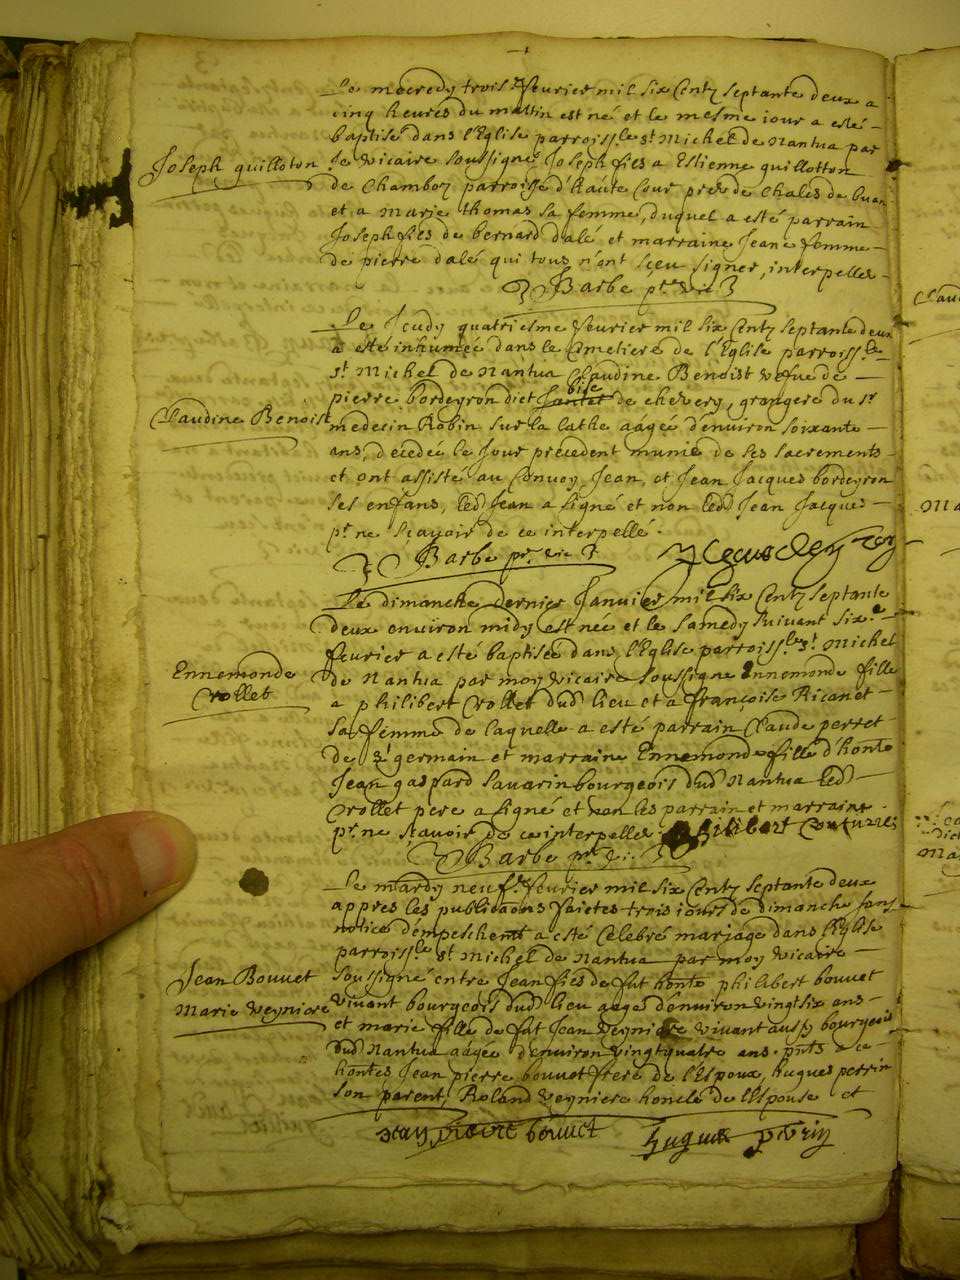 Le mecredy trois febvrier mil six Centz septante deux a
cinq heures du mattin est né et le mesme iour a esté
baptisé dans l'Eglise parroiss.le s.t Michel de Nantua par
Joseph quilloton
le vicaire soussigné Joseph fils a Estienne quillotton
de Chamboz parroisse d'haute Cour prés de Chales de
et a Marie thomas sa femme, duquel a esté parrain
Joseph fils de bernard dalé et marraine Jeane femme
de pierre dalé qui tous n'ont sceu signer, interpellés
Barbe p.tre vic.
Le Jeudy quatriesme febvrier mil six Centz septante deux
a esté inhumée dans le Cimetiere de l'Eglise parroiss.le
s.t Michel de Nantua Claudine Benoist vefve de
pierre bordeyron dict bise de chevery, grangere du s.r
Claudine Benoist
medecin Robin sur la Cathe aagée d'environ soixante
ans, décedée le Jour precedent munie de ses sacrements
et ont assisté au Convoy, Jean, et Jean Jacques bordeyron
ses enfans, led Jean a signé et non led Jean Jacques
p.r ne sçavoir de ce interpellé.
Barbe p.tre vic.
Le dimanche dernier Janvier mil six Centz septante
deux environ midy est née et le samedy suivant six.e
febvrier a esté baptisée dans l'Eglise parroiss.le s.t Michel
Ennemonde
Crollet
de Nantua par moy vicaire soussigné Ennemonde fille
a philibert Crollet dud lieu et a françoise Ricanet
sa femme de laquelle a esté parrain Claude perret
de s.t germain et marraine Ennemonde fille d'honte
Jean gaspard Savarin bourgeois dud Nantua led
Crollet pere a signé et non les parrain et marraine
p.r ne sçavoir de ce interpellés
Barbe p.tre
Le mardy neuf.e febvrier mil six Centz septante deux
appres les publicaons faictes trois iours de dimanche sans
notice d'empeschent a esté Celebré mariage dans l'Eglise
parroiss.le s.t Michel de Nantua par moy vicaire
Jean Bouvet
Marie veyniere
soussigné entre Jean fils de fut honte philibert bouvet
vivant bourgeois dud lieu aagé d'environ vingt six ans
et marie fille de fut Jean veyniere vivant aussy bourgeois
dud Nantua aagée d'environ vingt quatre ans. pnts a ce
hontes Jean pierre bouvet frere de l'Espoux, hugues perrin
son parent, Roland veyniere honcle de l'Espouse et
Jean pierre bouvet
hugue perrin